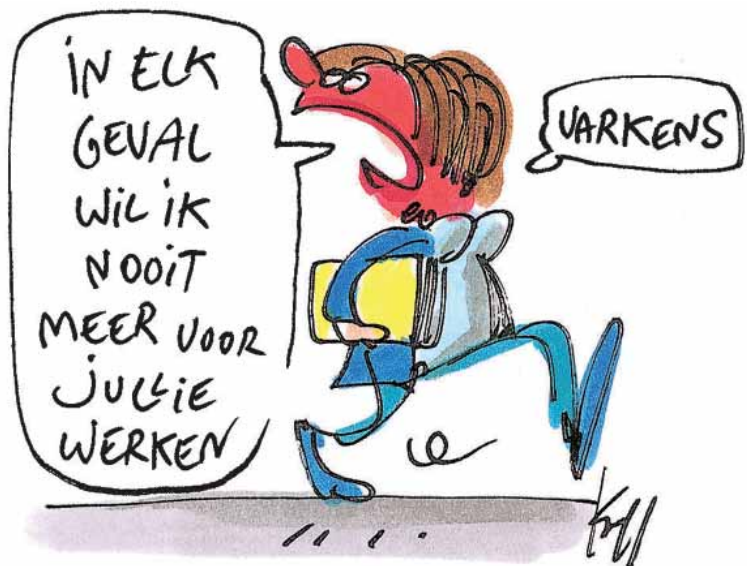 iN ELK
GEVAL
WiL iK
NOOiT
MEER VOOR
JULLiE
WERKEN
VARKENS